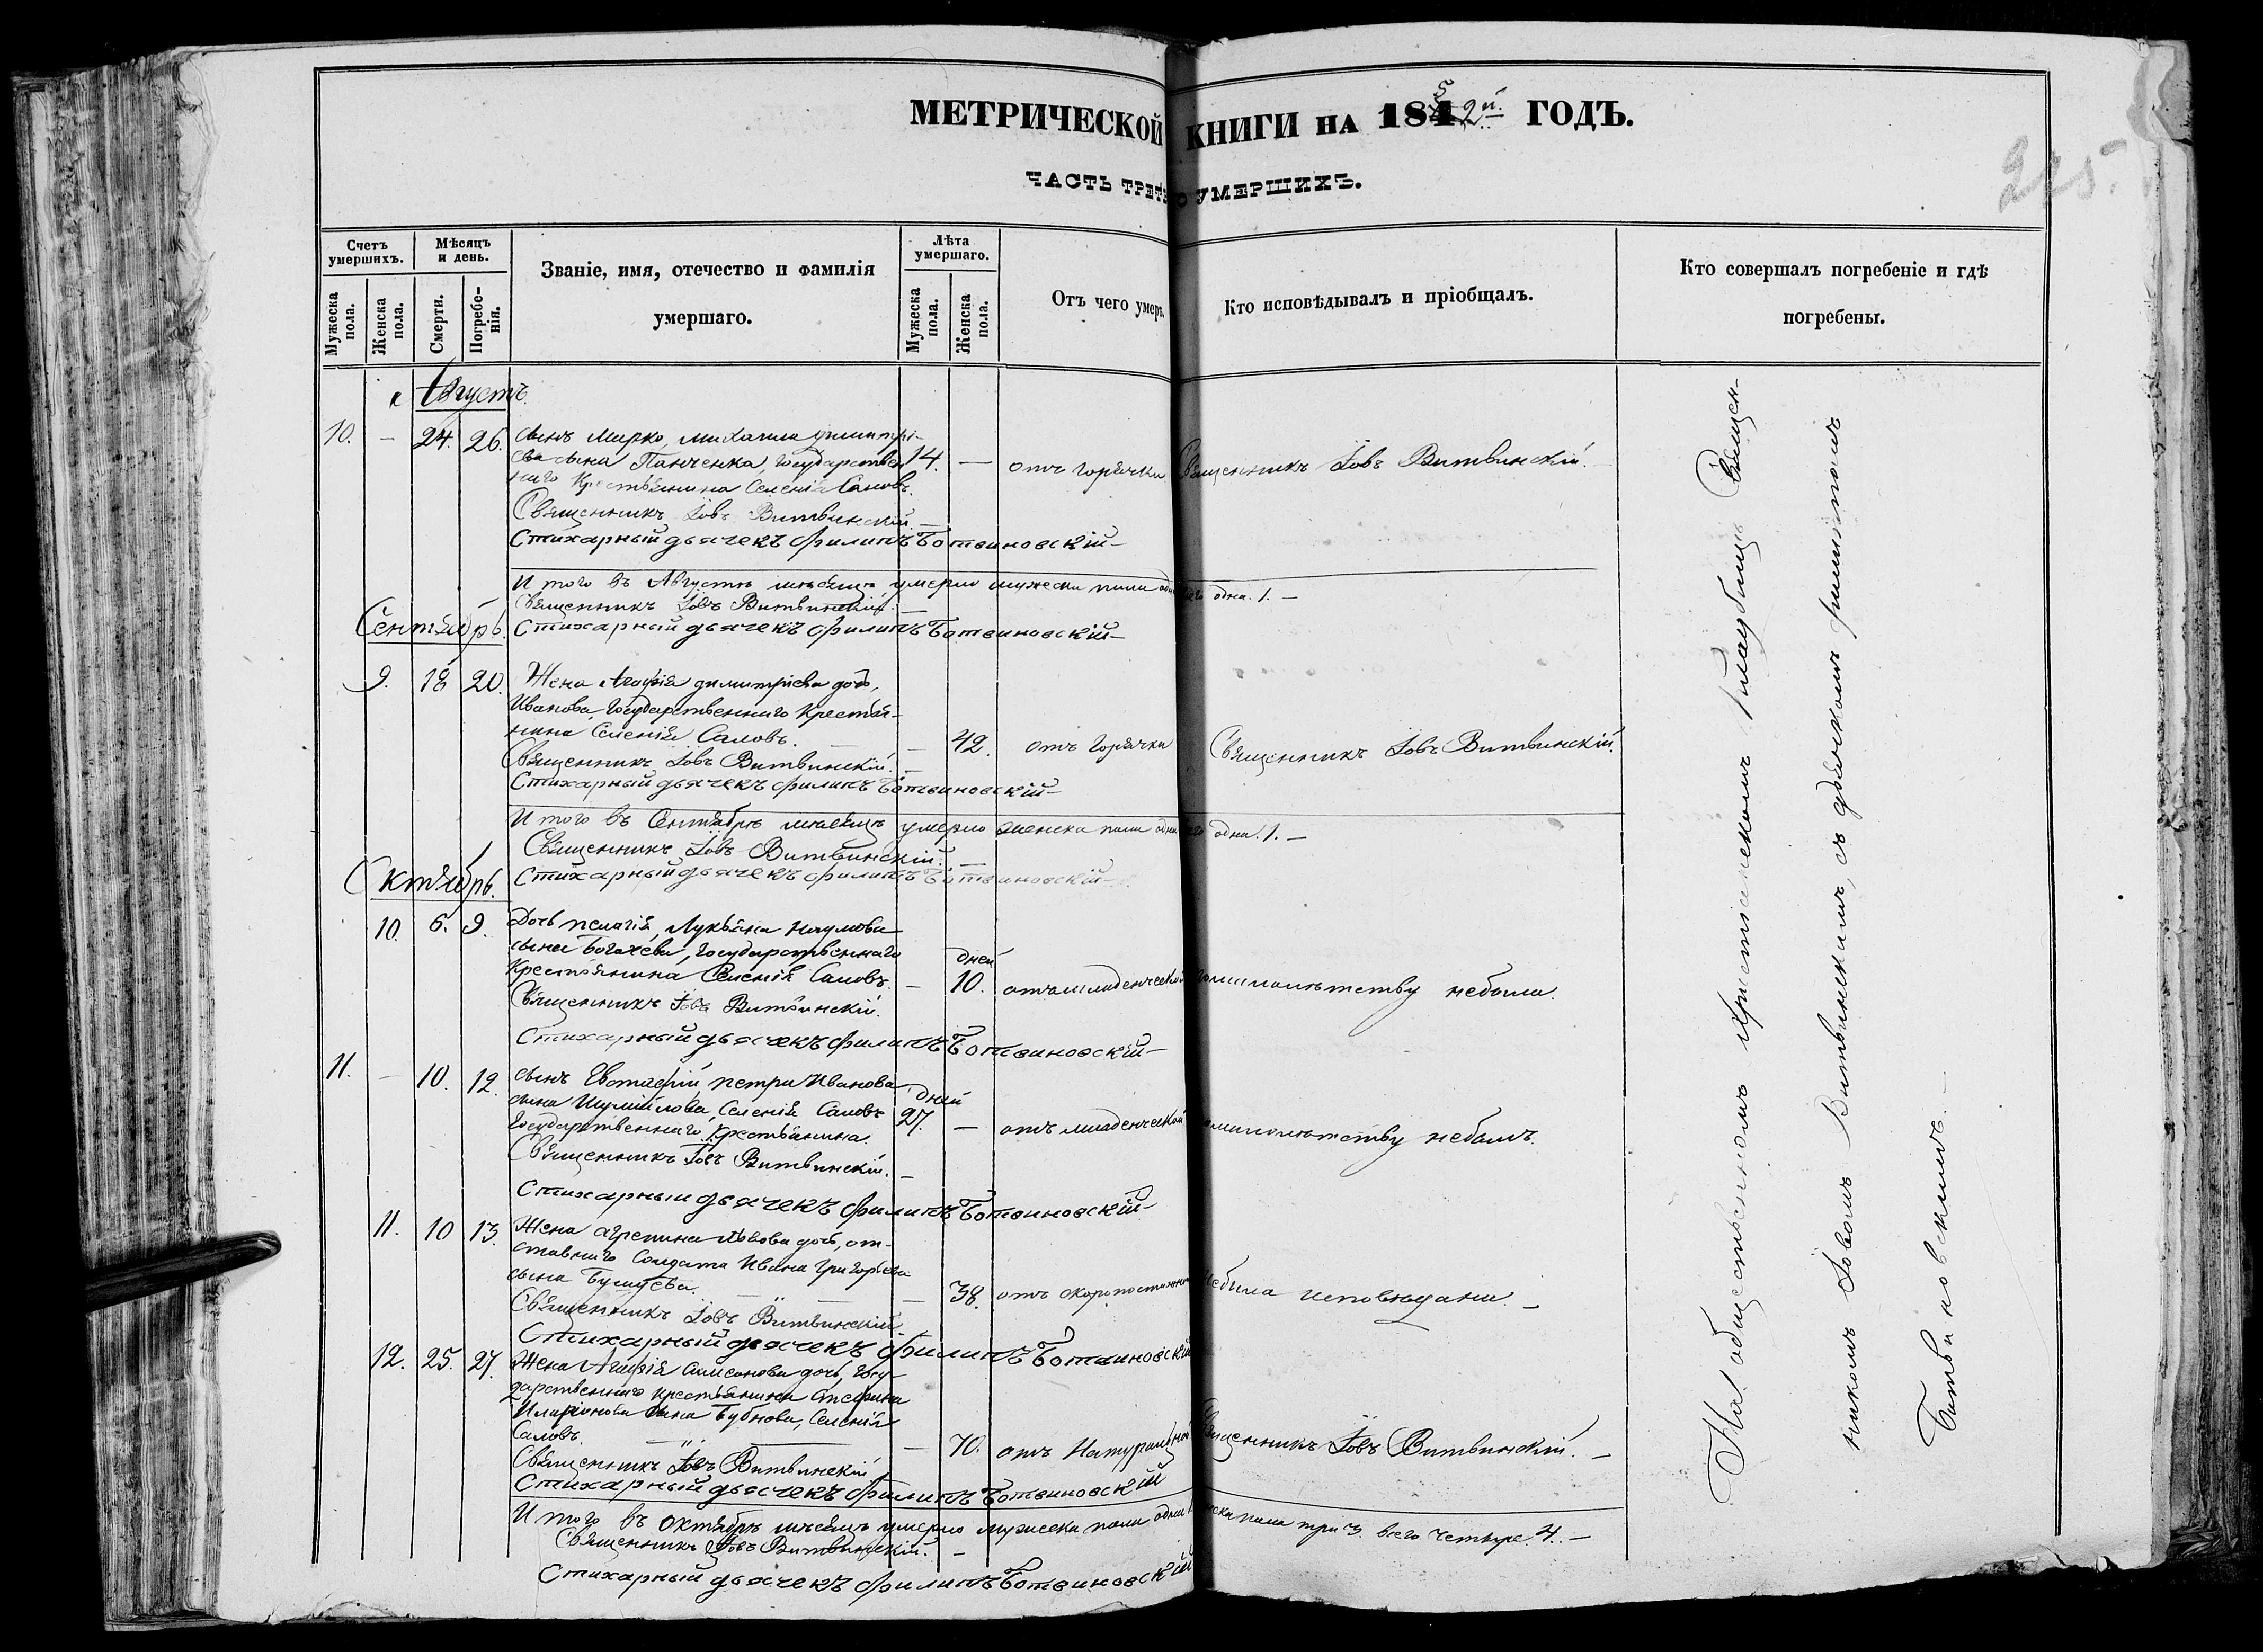 МЕТРИЧЕСКОЙ КНИГИ НА 1852й. ГОДЪ.
225.
ЧАСТЬ ТРЕТЬ О УМЕРШИХЪ.
Счетъ умершихъ.
Мужеска пола.
Женска пола.
Мѣсяцъ и день.
Смерти.
Погребе-нія.
Званіе, имя, отечество и фамилія
умершаго.
Лѣта умершаго.
Мужеска пола.
Женска пола.
Отъ чего умеръ.
Кто исповѣдывалъ и пріобщалъ.
Кто совершалъ погребеніе и гдѣ
погребены.
Августъ.
10. — 24. 26. сынъ Марко, Михаила Димитрі-
ева сына Панченка, Государствен 14. — отъ горячки Священникъ Іовъ Витвинскій.
наго Крестьянина Селенія Саловъ.
Священникъ Іовъ Витвинскій. —
Стихарный дьячекъ Филипъ Ботвиновскій —
И того въ Августѣ мѣсяцѣ умерло мужеска пола одна всего одна. 1. —
Священникъ Іовъ Витвинскій. —
Сентябрь. Стихарный дьячекъ Филипъ Ботвиновскій —
9. 18 20. Жена Агафія Димитріева дочь,
Иванова, Государственнаго Крестья-
нина Селенія Саловъ. — 42. отъ горячки Священникъ Іовъ Витвинскій.
Священникъ Іовъ Витвинскій. —
Стихарный дьячекъ Филипъ Ботвиновскій —
И того въ Сентябрѣ мѣсяцѣ умерло женска пола одна всего одна. 1. —
Священникъ Іовъ Витвинскій. —
Октябрь. Стихарный дьячекъ Филипъ Ботвиновскій —
10. 6. 9. Дочь Пелагія, Лукьяна Наумова
сына Богачева, Государственнаго дней
Крестьянина Селенія Саловъ. — 10. отъ младенческой по малолѣтству небыла.
Священникъ Іовъ Витвинскій.
Стихарный дьячекъ Филипъ Ботвиновскій —
11. — 10. 12. сынъ Евстафій Петра Иванова дней
сына Шумилова, Селенія Саловъ 27. — отъ младенческой по малолѣтству небылъ.
Государственнаго Крестьянина.
Священникъ Іовъ Витвинскій. —
Стихарный дьячекъ Филипъ Ботвиновскій —
11. 10 13. Жена Агрепина Львова дочь, от-
ставнаго Солдата Ивана Григорьева
сына — 38. отъ скоропостижной небыла исповѣдана. —
Священникъ Іовъ Витвинскій
Стихарный дьячекъ Филипъ Ботвиновскій
12. 25. 27. Жена Агафія Симеонова дочь, Госу-
дарственнаго Крестьянина Стефана
Иларіонова сына Бубнова, Селенія
Саловъ. — 70. отъ Натуральной Священникъ Іовъ Витвинскій. —
Священникъ Іовъ Витвинскій
Стихарный дьячекъ Филипъ Ботвиновскій
И того въ Октябрѣ мѣсяцѣ умерло мужеска пола одинъ 1. женска пола три 3. всего четыре. 4. —
Священникъ Іовъ Витвинскій. —
Стихарный дьячекъ Филипъ Ботвиновскій
На общественномъ Христіанскомъ Кладбищѣ Священ-
никомъ Іовомъ Витвинскимъ, съ дьячкомъ Филиппомъ
Ботвиновскимъ. —